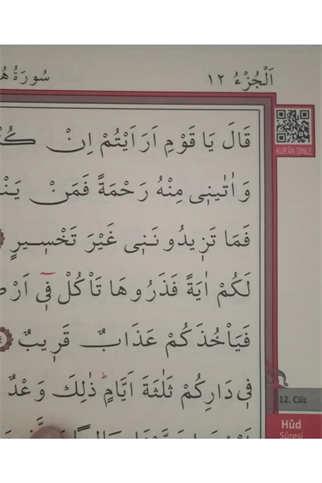 اَلْجُزْءُ ١٢ سُورَةُ
KUR'ÂN DİNLE
قَالَ يَا قَوْمِ اَرَاَيْتُمْ اِنْ
وَاٰتٰينٖى مِنْهُ رَحْمَةً فَمَنْ
فَمَا تَزٖيدُونَنٖى غَيْرَ تَخْسٖيرٍ
لَكُمْ اٰيَةً فَذَرُوهَا تَاْكُلْ فٖٓى
فَيَاْخُذَكُمْ عَذَابٌ قَرٖيبٌ
فٖى دَارِكُمْ ثَلٰثَةَ اَيَّامٍ ذٰلِكَ وَعْدٌ
12. Cüz
Hûd
Sûresi